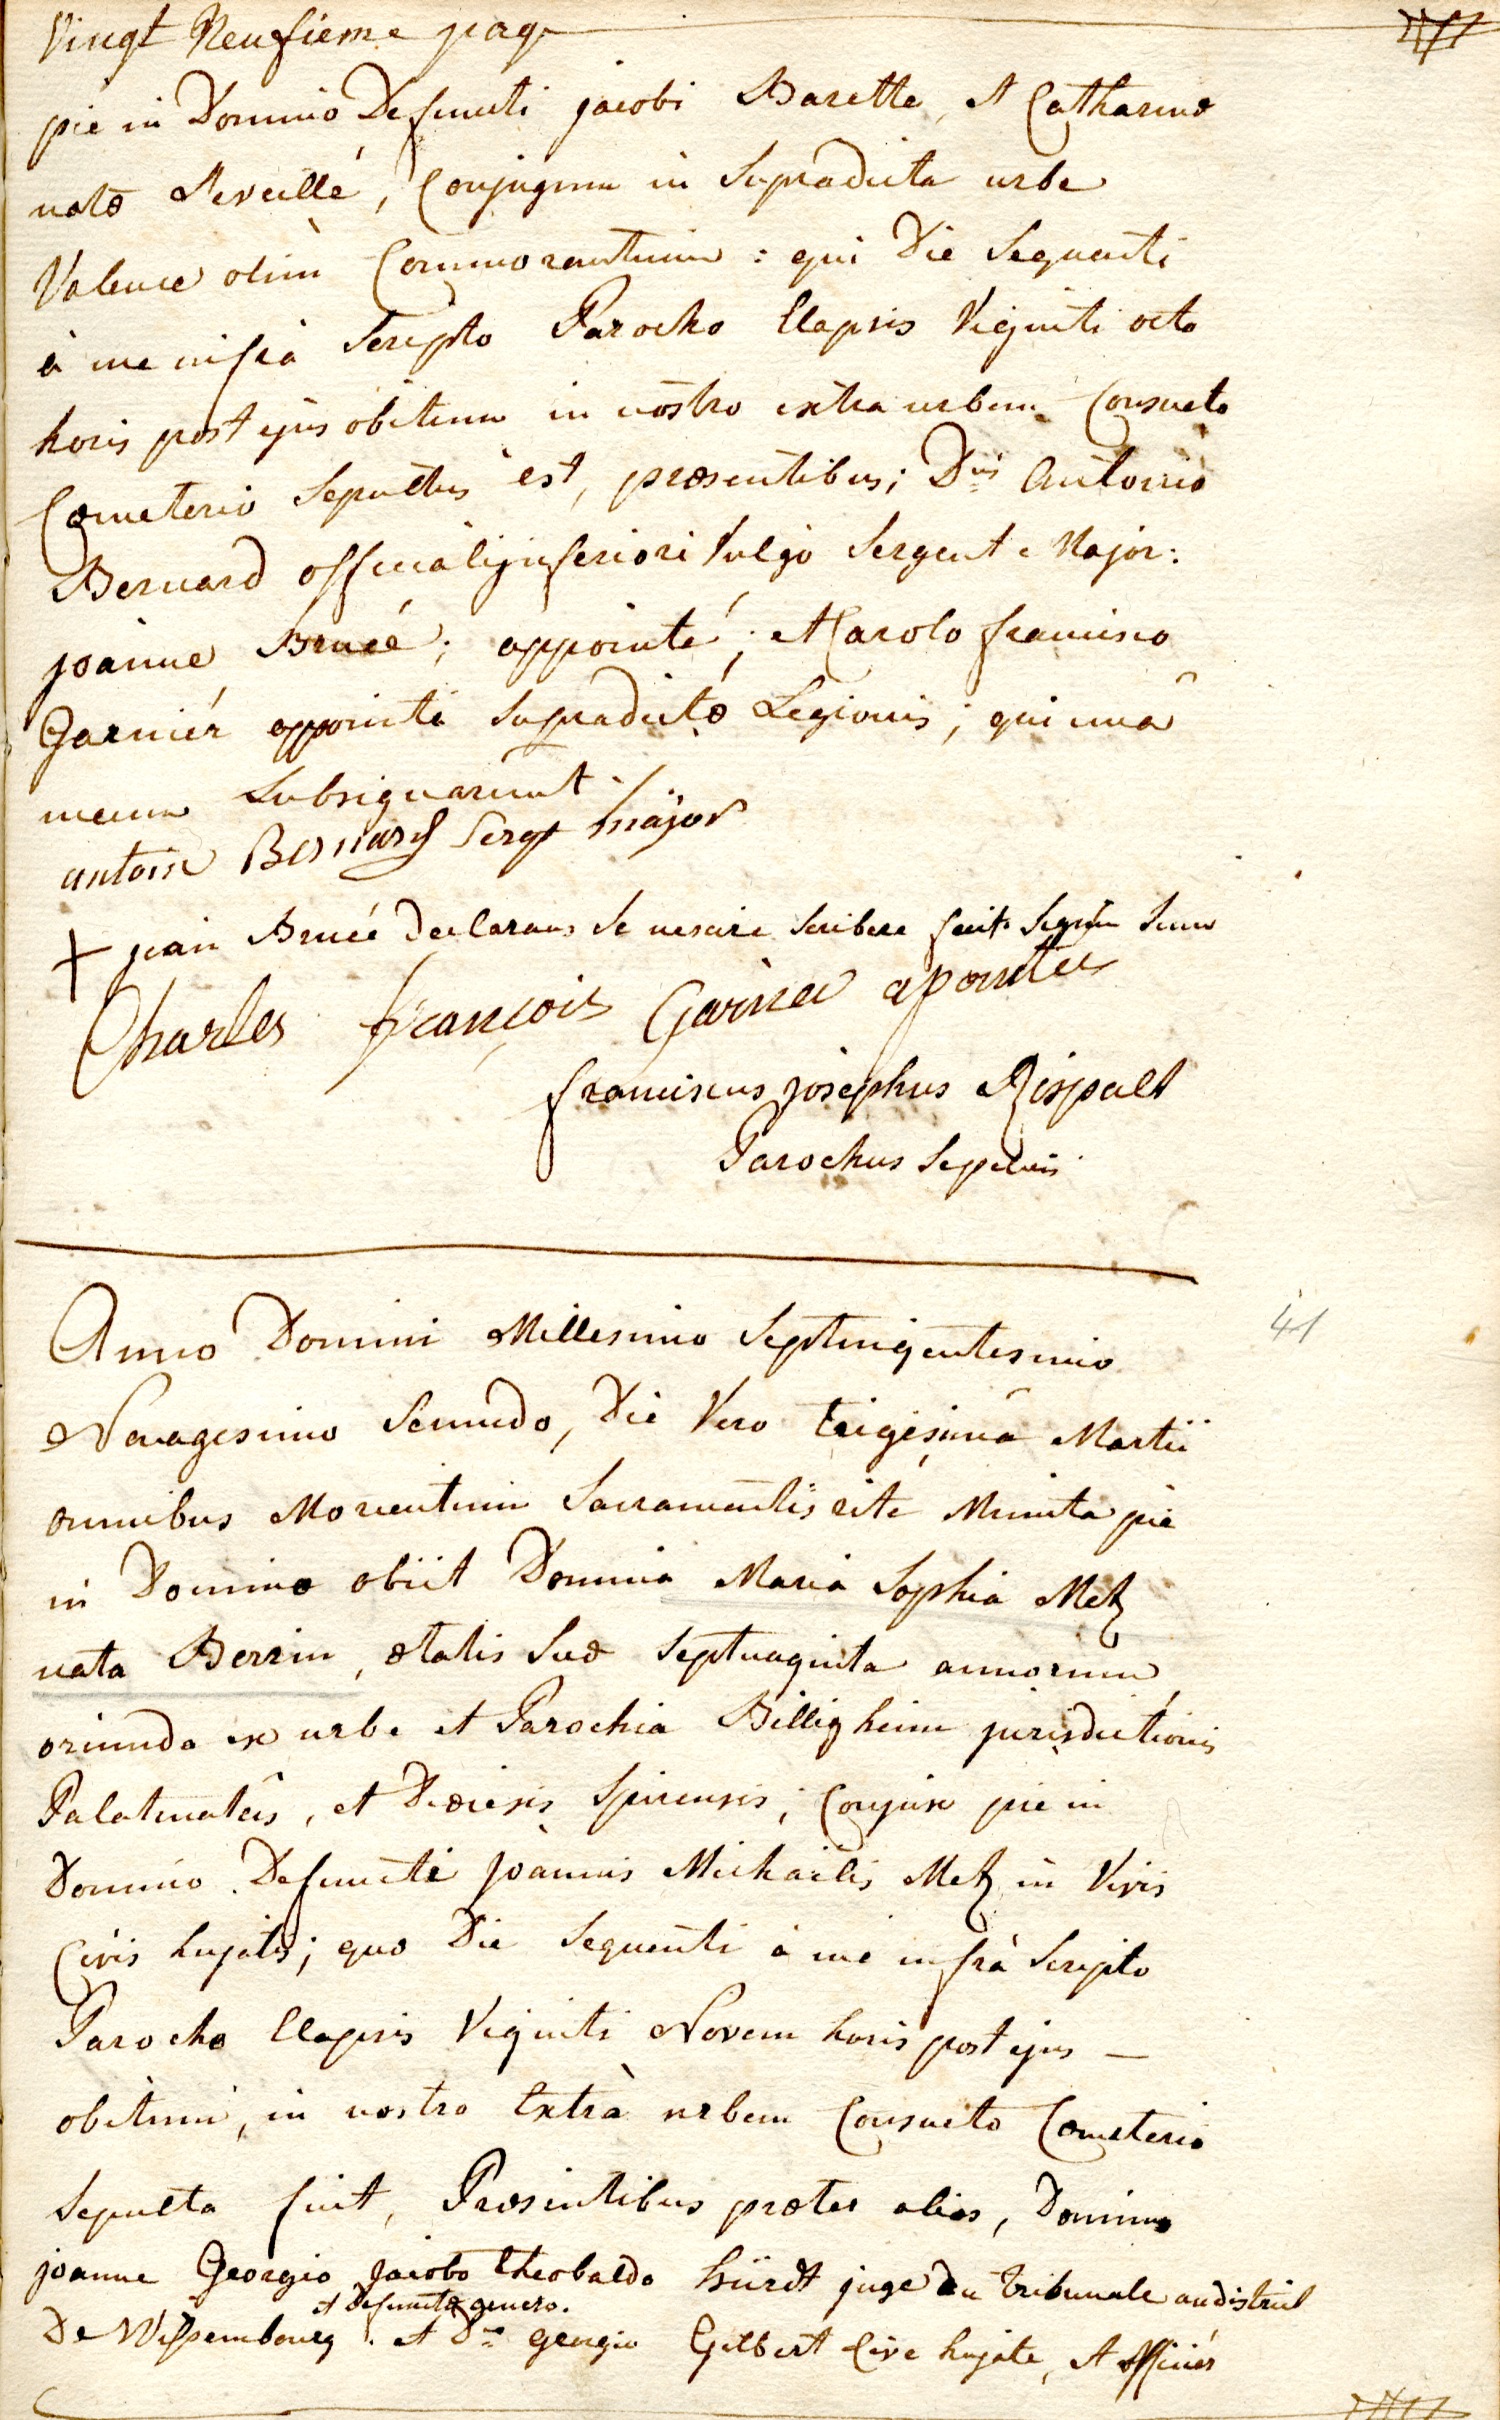 Vingt Neufieme page
pie in Domino Defuncti jacobi Barette, et Catharinæ
natæ Reveillé, Conjugum in Supradicta urbe
Valence olim Commorantium : qui Die Sequenti
à me infrà Scripto Parocho Elapsis Viginti octo
horis post ejus obitum in nostro extra urbem Consueto
Cœmeterio Sepultus est, præsentibus; Dnis Antonio
Bernard officiali inferiori Vulgo Sergent Major:
joanne Brucé; appointé; et Carolo francisco
Garnier appointé Supradictæ Legionis; qui unà
mecum Subsignarunt.
antoine Bernard Sergt major
+ jean Brucé Declarans Se nescire Scribere fecit Signum Suum
Charles françois Garnier apointée
franciscus josephus Rispalt
Parochus Sepeliens
41
Anno Domini Millesimo Septingentesimo
Nonagesimo Secundo, Die Vero trigesimâ Martii
omnibus Morientium Sacramentis rité Munita pie
in Domino obiit Domina Maria Sophia Metz
nata Berrin, ætatis Suæ Septuaginta annorum
oriunda ex urbe et Parochia Billigheim jurisdictionis
Palatinatûs, et Diœcesis Spirensis, Conjux pie in
Domino Defuncti joannis Michaelis Metz in Vivis
Civis hujatis; quæ Die Sequenti à me infrà Scripto
Parocho Elapsis Viginti Novem horis post ejus —
obitum, in nostro Extrà urbem Consueto Cœmeterio
Sepulta fuit, Præsentibus præter alios, Domino
joanne Georgio jacobo theobaldo hürdt juge du tribunale au district
et Defunctæ genero.
De Wissembourg. et Dno georgio Gilbert Cive hujate, et officier